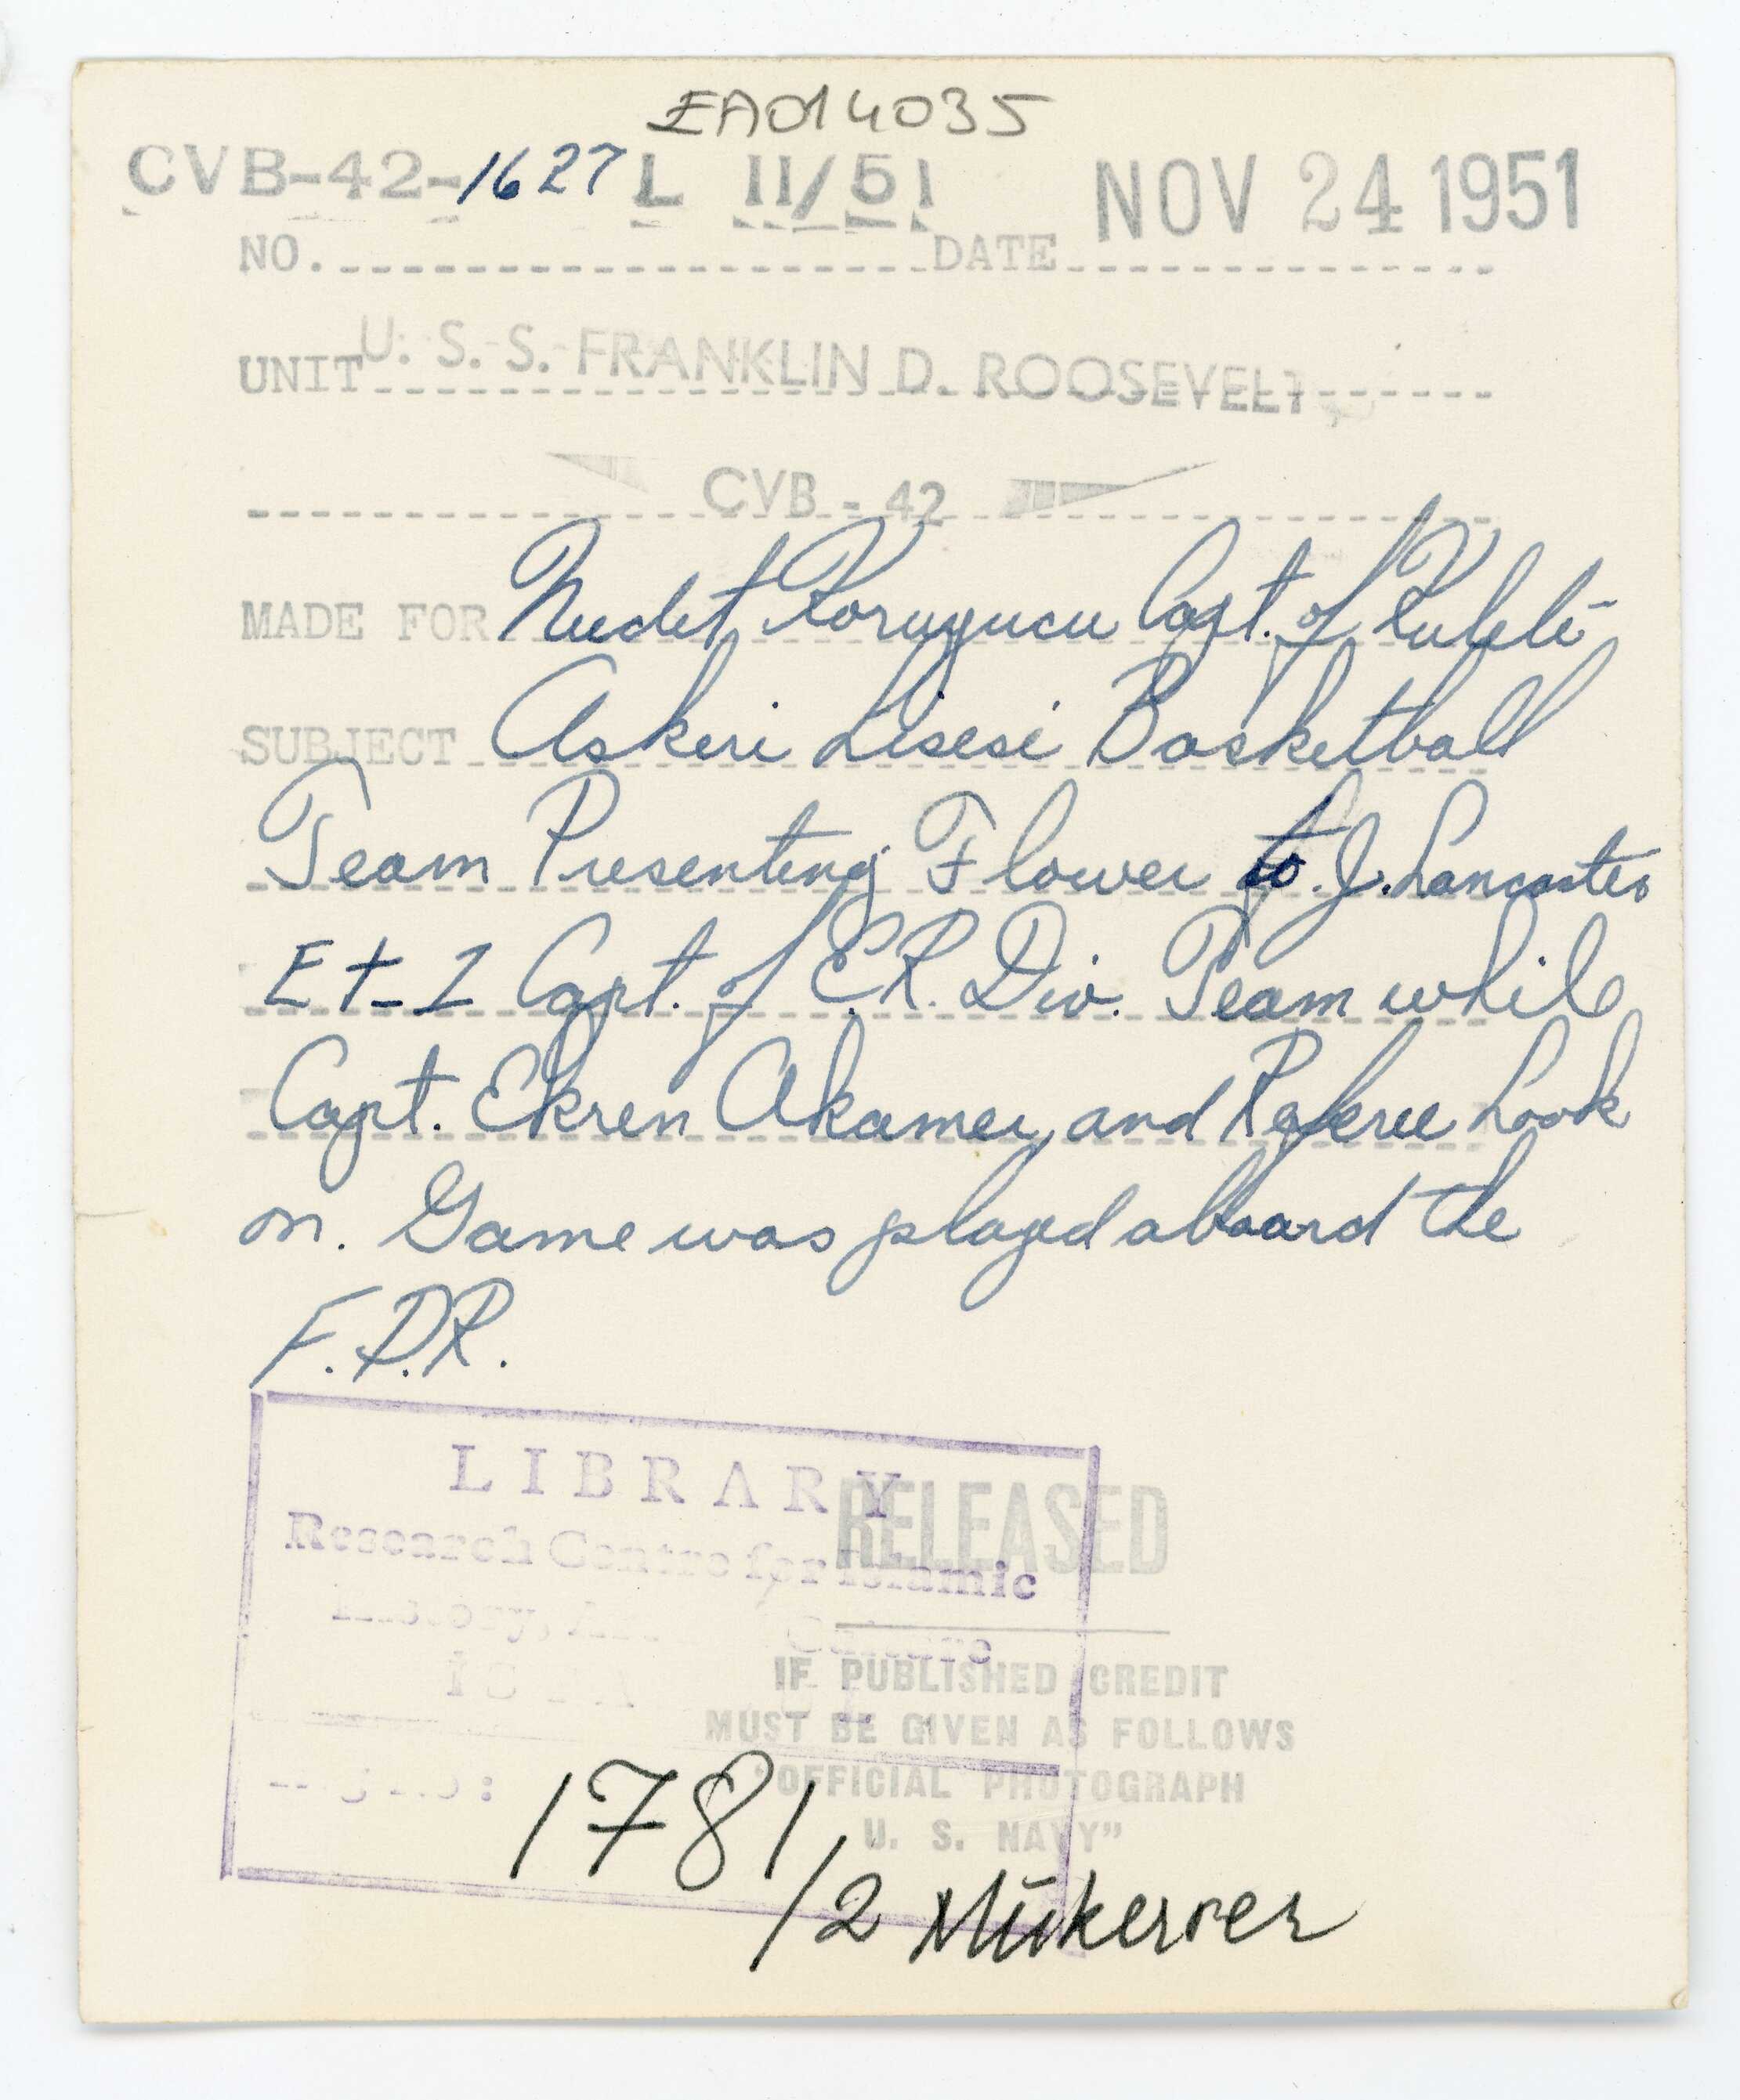 EA014035
CVB-42-1627 L 11/51 NOV 24 1951
NO. DATE
UNIT U. S. S. FRANKLIN D. ROOSEVELT
CVB - 42
MADE FOR Koruyucu Capt. of Kuleli
SUBJECT Askeri Lisesi Basketball
Team Presenting Flower to J. Lancaster
Et-1 Capt. of E.R. Div. Team while
Capt. Ekren and Referee Look
on. Game was played aboard the
F.D.R.
LIBRARY
RELEASED
Research Centre for Islamic
History, Culture
IF PUBLISHED CREDIT
MUST BE GIVEN AS FOLLOWS
"OFFICIAL PHOTOGRAPH
U. S. NAVY"
1781/2 Mükerrer